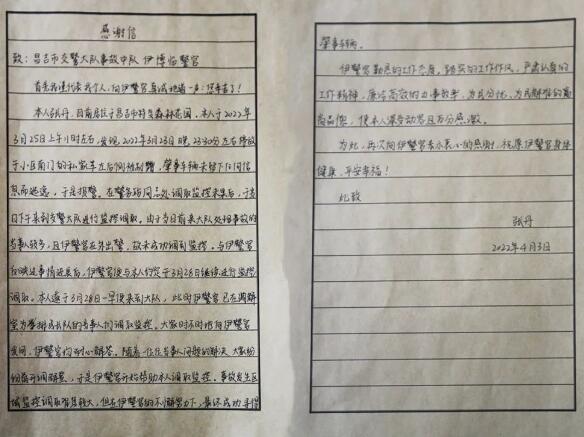 感谢信
致：昌吉市交警大队事故中队 伊博临警官
首先我谨代表我个人，向伊警官真诚地道一声：您辛苦了！
本人张丹，目前居住于昌吉市特变森林花园。本人于2022年
3月25日上午11时左右，发现2022年3月23日晚23:30分左右停放
于小区南门的私家车左后侧被剐蹭，肇事车辆未留下任何信
息而逃逸，于是报警。在警务站同志处调取监控未果后，于当
日下午来到交警大队进行监控调取。由于当日前来大队处理事故的
当事人较多，且伊警官在外出警，故未成功调到监控。与伊警官
反映过事情经过后，伊警官便与本人约定于3月28日继续进行监控
调取。本人遂于3月28日一早便来到大队，此时伊警官已在调解
室为排成长队的当事人们调取监控。大家时不时地向伊警官
发问，伊警官均耐心解答。随着一位位当事人问题的解决，大家纷
纷离开调解室，于是伊警官开始帮助本人调取监控。事故发生区
域监控调取难度较大，但在伊警官的不懈努力下，最终成功寻得
肇事车辆。
伊警官勤恳的工作态度、踏实的工作作风、严肃认真的
工作精神、廉洁高效的办事效率、为民分忧、为民解难的高
尚品德，使本人深受动容且万分感激。
为此，再次向伊警官表示衷心的感谢，祝愿伊警官身体
健康、平安幸福！
此致
张丹
2022年4月3日